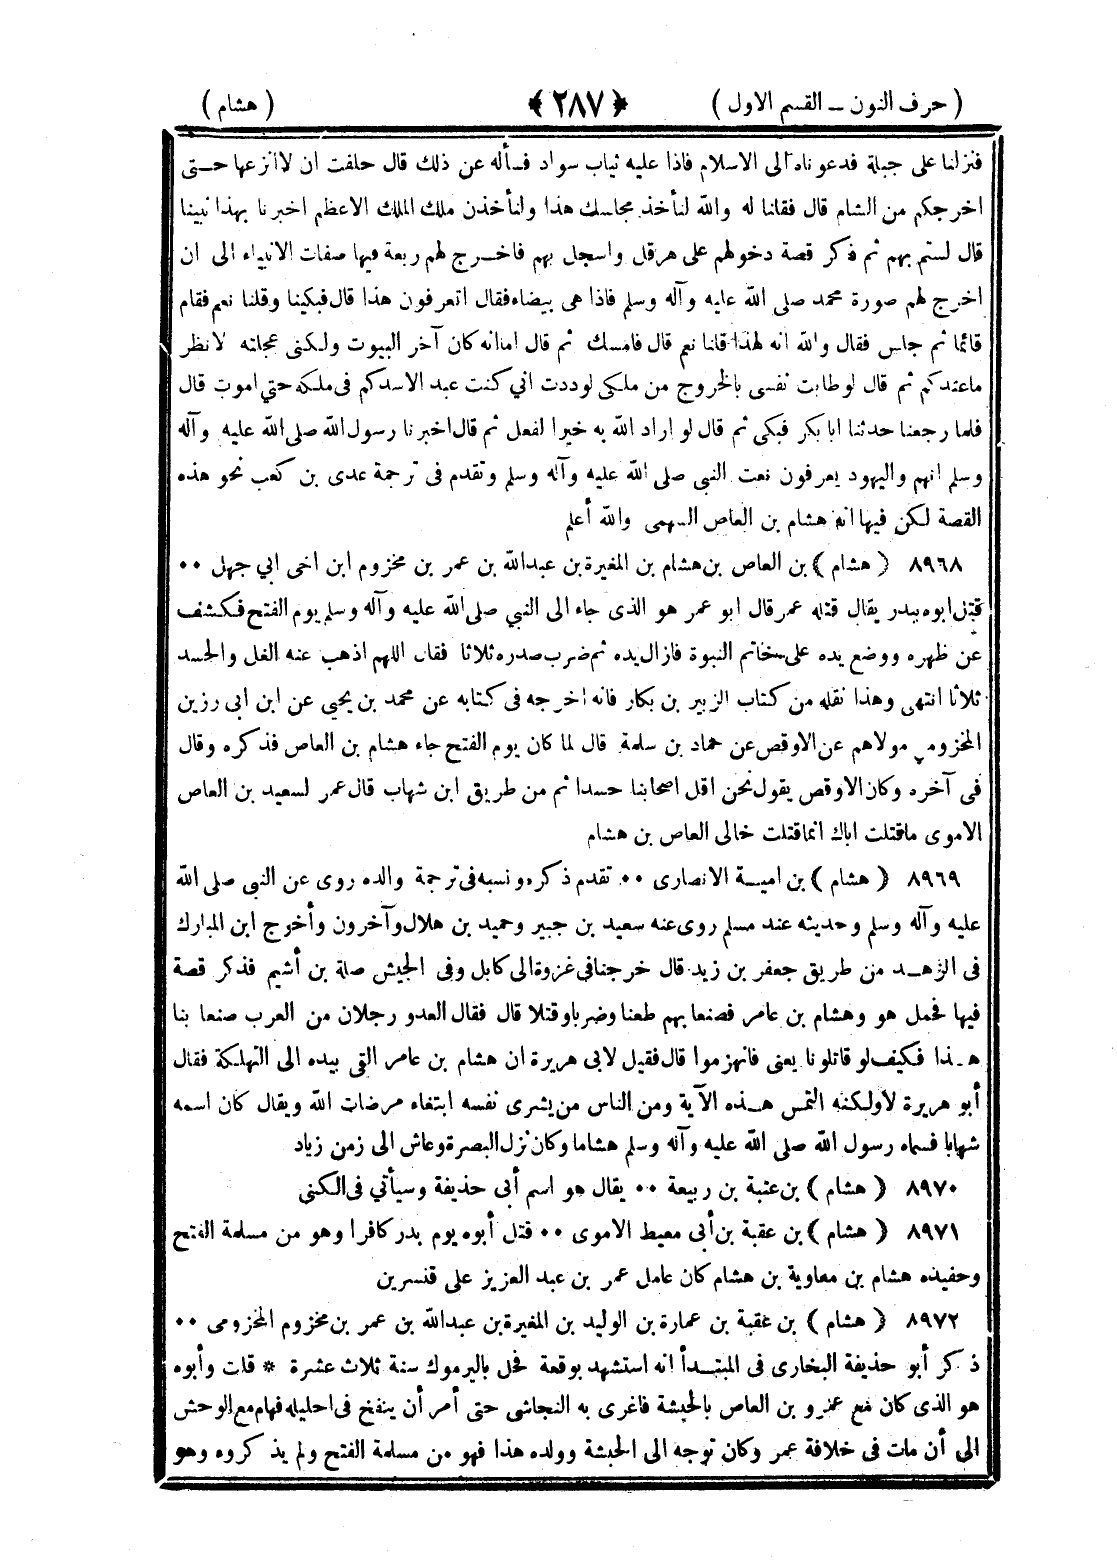 ( حرف النون ــ القسم الاول ) ﴿ ٢٨٧ ﴾ ( هشام )
فنزلنا على جبلة فدعوناه الى الاسلام فاذا عليه ثياب سواد فسأله عن ذلك قال حلفت ان لاانزعها حتى
اخرجكم من الشام قال فقلنا له والله لنأخذ مجلسك هذا ولنأخذن ملك الملك الاعظم اخبرنا بهذا نبينا
قال لستم بهم ثم ذكر قصة دخولهم على هرقل واسجل بهم فاخرج لهم ربعة فيها صفات الانبياء الى ان
اخرج لهم صورة محمد صلى الله عليه وآله وسلم فاذا هى بيضاء فقال اتعرفون هذا قال فبكينا وقلنا نعم فقام
قائما ثم جلس فقال والله انه لهذا قلنا نعم قال فامسك ثم قال اماانه كان آخر البيوت ولكنى عجلته لانظر
ماعندكم ثم قال لو طابت نفسى بالخروج من ملكى لوددت اني كنت عبد الاسدكم فى ملكه حتي اموت قال
فلما رجعنا حدثنا ابا بكر فبكى ثم قال لو اراد الله به خيرا لفعل ثم قال اخبرنا رسول الله صلى الله عليه وآله
وسلم انهم واليهود يعرفون نعت النبي صلى الله عليه وآله وسلم وتقدم فى ترجمة عدى بن كعب نحو هذه
القصة لكن فيها انه هشام بن العاص السهمى والله أعلم
٨٩٦٨ ( هشام ) بن العاص بن هشام بن المغيرة بن عبدالله بن عمر بن مخزوم ابن اخى ابي جهل ٠٠
قتل ابوه ببدر يقال قتله عمر قال ابو عمر هو الذى جاء الى النبي صلى الله عليه وآله وسلم يوم الفتح فكشف
عن ظهره ووضع يده على خاتم النبوة فازال يده ثم ضرب صدره ثلاثا فقال اللهم اذهب عنه الغل والحسد
ثلاثا انتهى وهذا نقله من كتاب الزبير بن بكار فانه اخرجه فى كتابه عن محمد بن يحيي عن ابن ابى رزين
المخزومي مولاهم عن الاوقص عن حماد بن سلمة قال لما كان يوم الفتح جاء هشام بن العاص فذكره وقال
فى آخره وكان الاوقص يقول نحن اقل اصحابنا حسدا ثم من طريق ابن شهاب قال عمر لسعيد بن العاص
الاموى ماقتلت اباك انماقتلت خالى العاص بن هشام
٨٩٦٩ ( هشام ) بن امية الانصارى ٠٠ تقدم ذكره ونسبه فى ترجمة والده روى عن النبى صلى الله
عليه وآله وسلم وحديثه عند مسلم روى عنه سعيد بن جبير وحميد بن هلال وآخرون وأخوج ابن المبارك
فى الزهد من طريق جعفر بن زيد قال خرجنا فى غزوة الى كابل وفى الجيش صلة بن أشيم فذكر قصة
فيها فحمل هو وهشام بن عامر فصنعا بهم طعنا وضرباوقتلا قال فقال العدو رجلان من العرب صنعا بنا
هذا فكيف لو قاتلونا يعنى فانهزموا قال فقيل لابى هريرة ان هشام بن عامر التى بيده الى التهلكة فقال
أبو هريرة لاولكنه التمس هذه الآية ومن الناس من يشرى نفسه ابتغاء مرضات الله ويقال كان اسمه
شهابا فسماه رسول الله صلى الله عليه وآله وسلم هشاما وكان نزل البصرة وعاش الى زمن زياد
٨٩٧٠ ( هشام ) بن عتبة بن ربيعة ٠٠ يقال هو اسم أبي حذيفة وسيأتي فى الكنى
٨٩٧١ ( هشام ) بن عقبة بن أبى معيط الاموى ٠٠ قتل أبوه يوم بدر كافرا وهو من مسلمة الفتح
وحفيده هشام بن معاوية بن هشام كان عامل عمر بن عبد العزيز على قنسرين
٨٩٧٢ ( هشام ) بن عقبة بن عمارة بن الوليد بن المغيرة بن عبدالله بن عمر بن مخزوم المخزومى ٠٠
ذكر أبو حذيفة البخارى فى المبتدأ انه استشهد بوقعة فحل باليرموك سنة ثلاث عشرة * قلت وأبوه
هو الذى كان مع عمرو بن العاص بالحبشة فاغرى به النجاشى حتى أمر أن ينفخ فى احليله فهام مع الوحش
الي أن مات فى خلافة عمر وكان توجه الى الحبشة وولده هذا فهو من مسلمة الفتح ولم يذكروه وهو